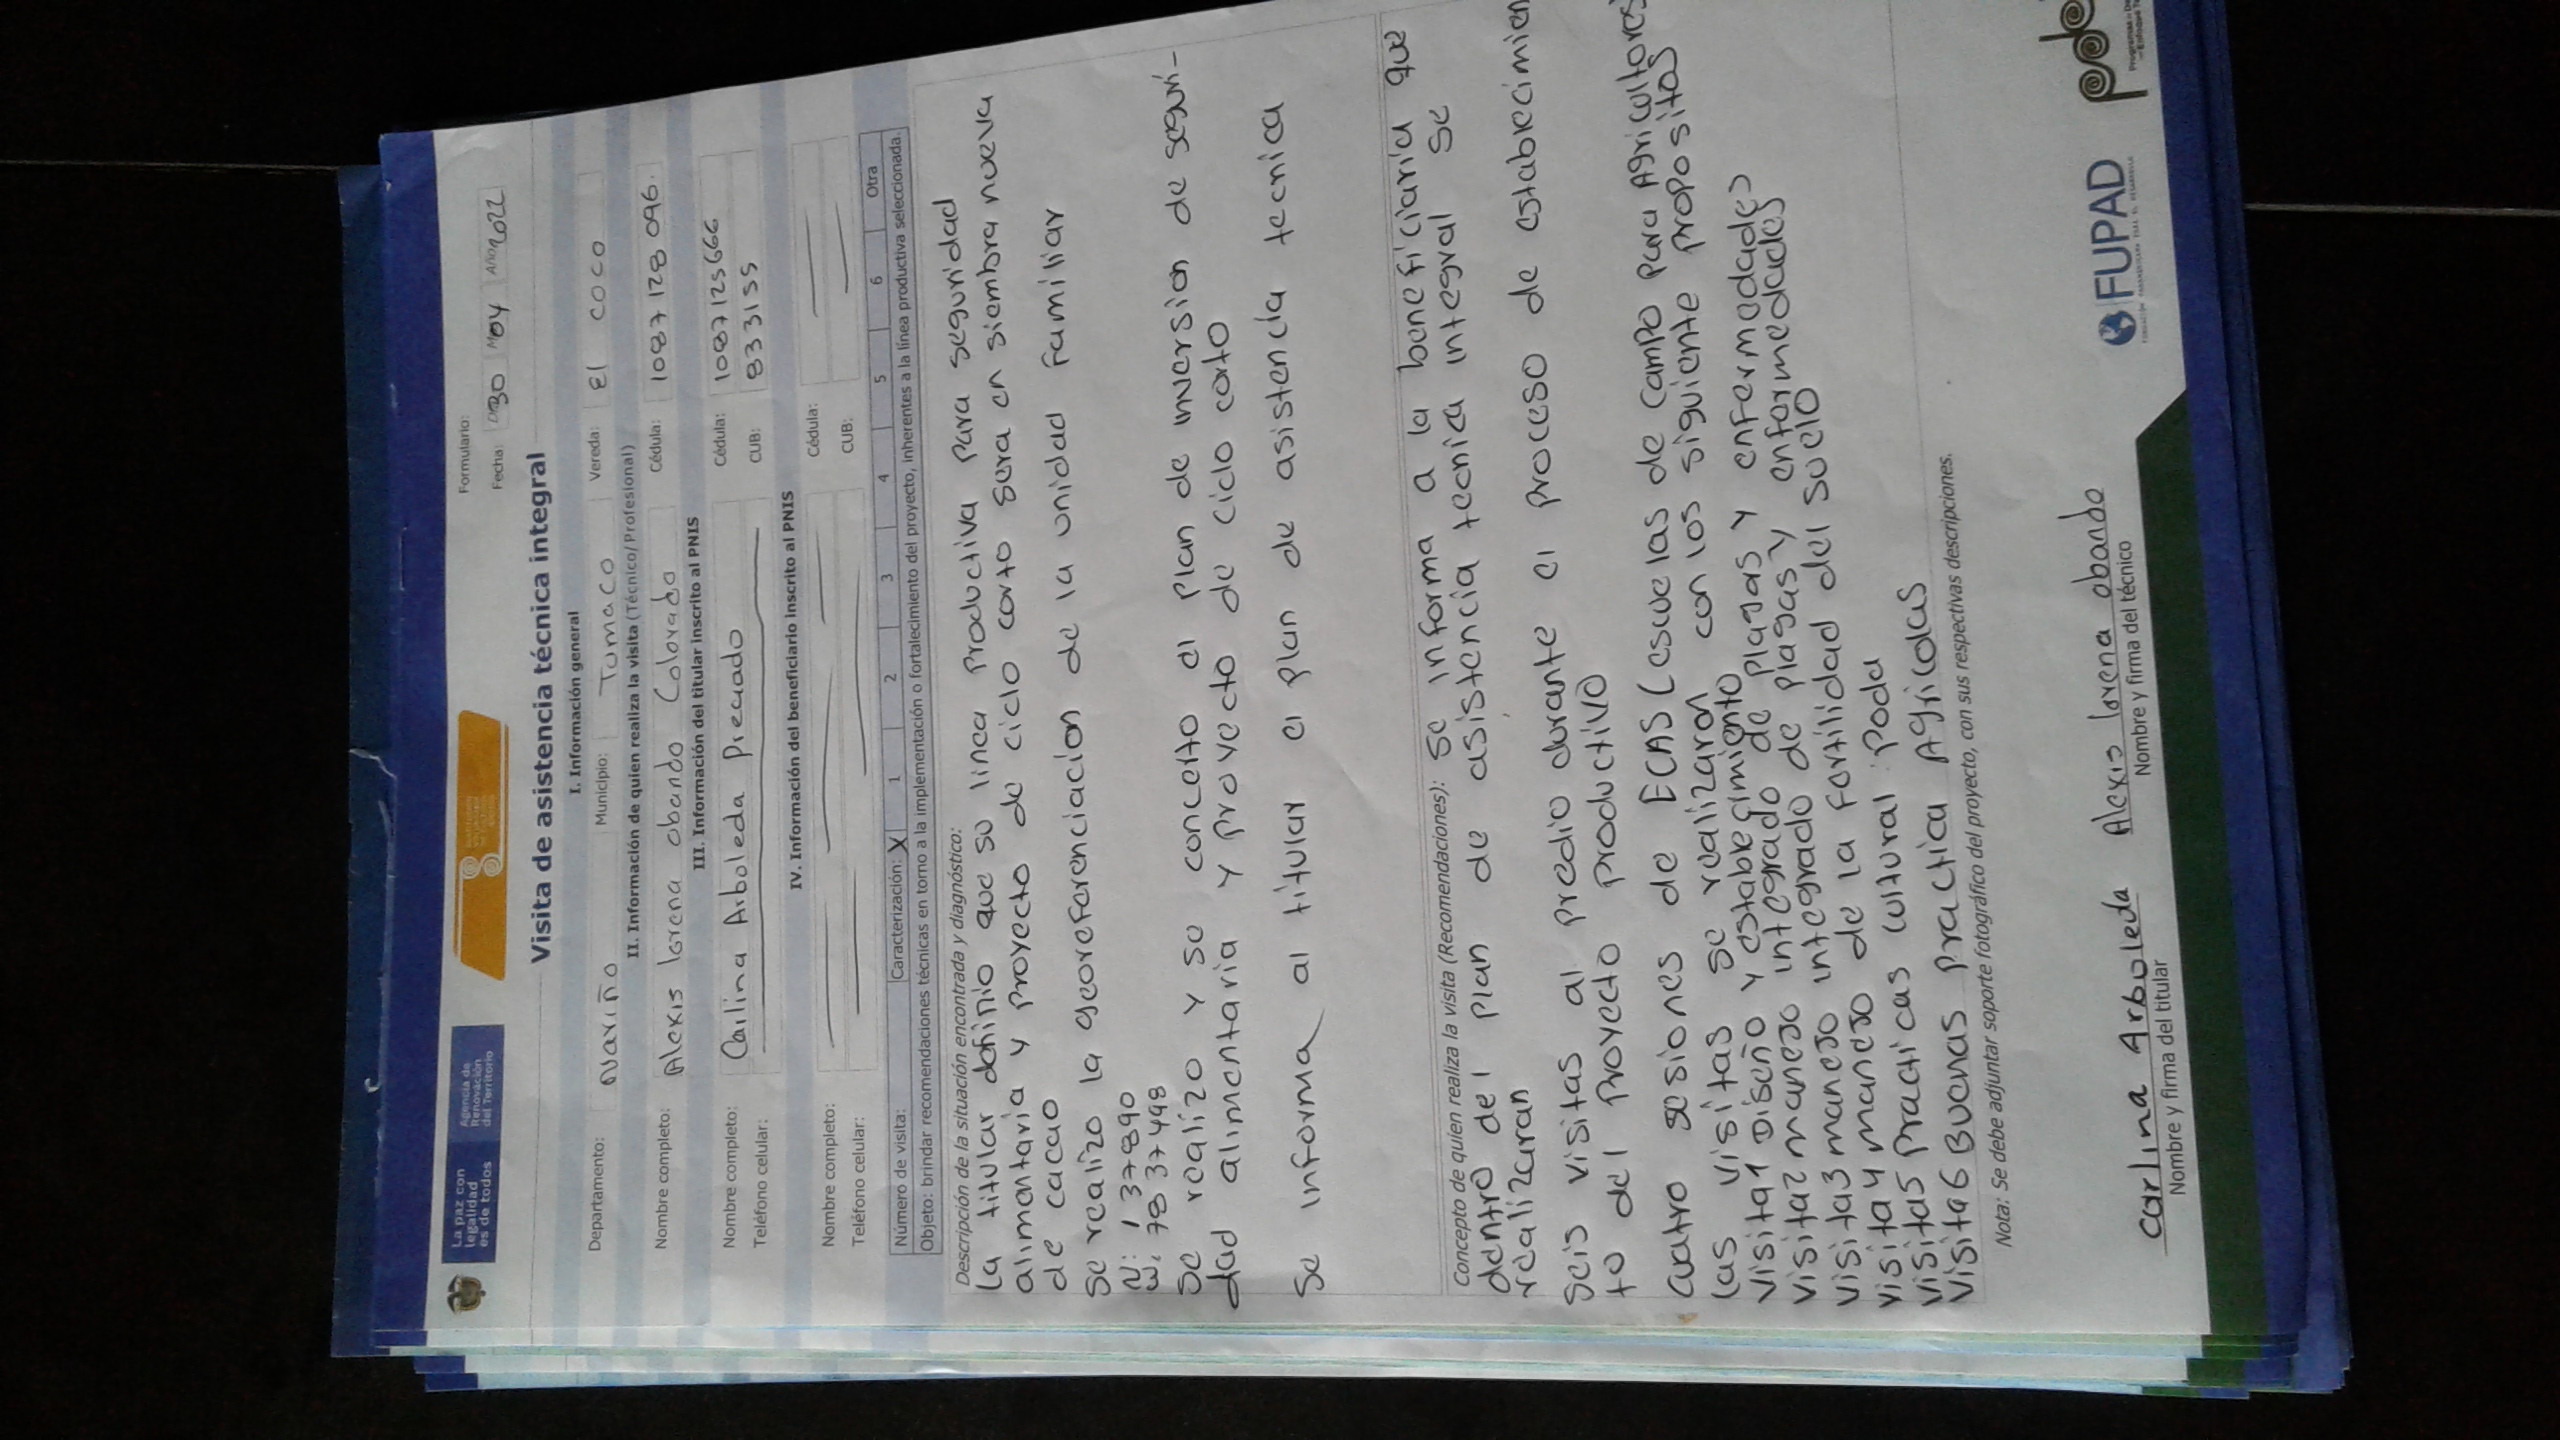 La paz con
legalidad
es de todos
Agencia de
Renovación
del Territorio
Formulario:
Fecha: 30 May Año 2022
Visita de asistencia técnica integral
I. Información general
Departamento: Nariño Municipio: Tumaco Vereda: El coco
II. Información de quien realiza la visita (Técnico/Profesional)
Nombre completo: Alexis lorena obando Colorado Cédula: 1087 128 096.
III. Información del titular inscrito al PNIS
Nombre completo: Carlina Arboleda Preciado Cédula: 1087125666
Teléfono celular: CUB: 833155
IV. Información del beneficiario inscrito al PNIS
Nombre completo: Cédula:
Teléfono celular: CUB:
Número de visita: Caracterización: X 1 2 3 4 5 6 Otra
Objeto: brindar recomendaciones técnicas en torno a la implementación o fortalecimiento del proyecto, inherentes a la línea productiva seleccionada.
Descripción de la situación encontrada y diagnóstico:
La titular definio que su linea productiva para seguridad
alimentaria y proyecto de ciclo corto sera en siembra nueva
de cacao
se realizo la georeferenciacion de la unidad familiar
N: 137890
W: 7837498
se realizo y se concerto el plan de inversion de seguri-
dad alimentaria y proyecto de ciclo corto
se informa al titular el plan de asistencia tecnica
Concepto de quien realiza la visita (Recomendaciones): se informa a la beneficiaria que
dentro del plan de asistencia tecnica integral se
realizaran
seis visitas al predio durante el proceso de establecimien
to del proyecto productivo
cuatro sesiones de ECAS (escuelas de campo para Agricultores)
las visitas se realizaron con los siguiente propositos
visita 1 Diseño y establecimiento
visita 2 manejo integrado de plagas y enfermedades
visita 3 manejo integrado de plagas y enfermedades
visita 4 manejo de la fertilidad del suelo
visita 5 practicas cultural: poda
visita 6 Buenas practica Agricolas
Nota: Se debe adjuntar soporte fotográfico del proyecto, con sus respectivas descripciones.
Carlina Arboleda Alexis lorena obando
Nombre y firma del titular Nombre y firma del técnico
FUPAD